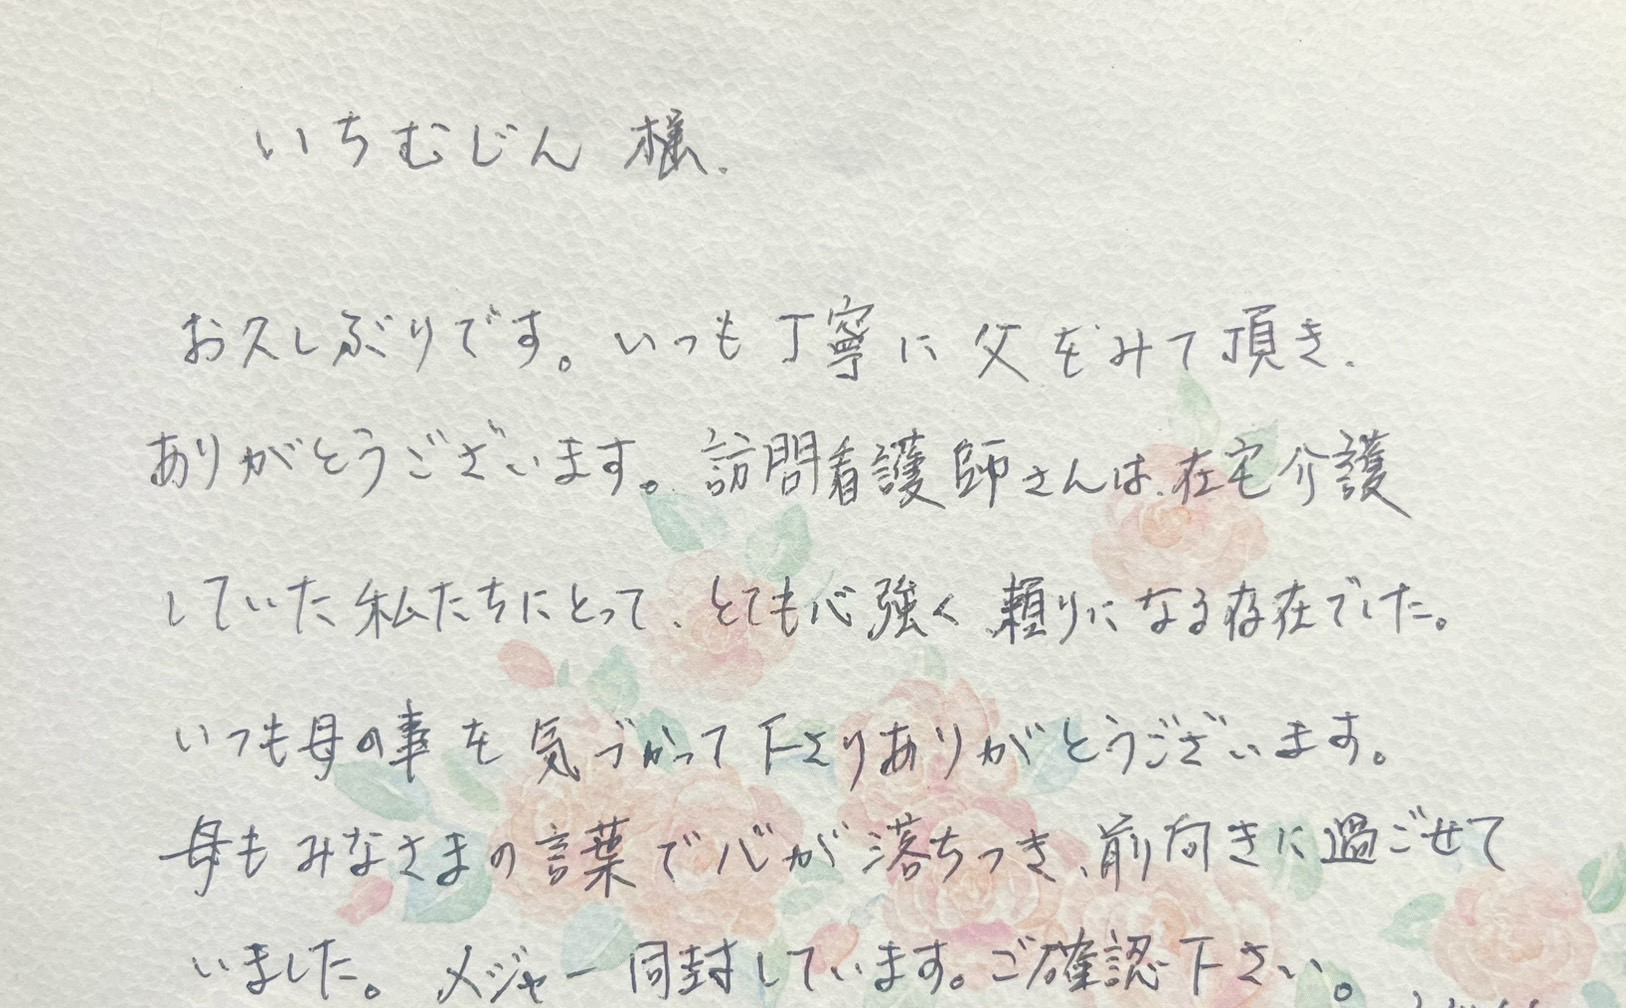 いちむじん 様.
お久しぶりです。いつも丁寧に父をみて頂き、
ありがとうございます。訪問看護師さんは、在宅介護
していた私たちにとって、とても心強く頼りになる存在でした。
いつも母の事を気づかって下さりありがとうございます。
母もみなさまの言葉で心が落ちつき、前向きに過ごせて
いました。メジャー同封しています。ご確認下さい。